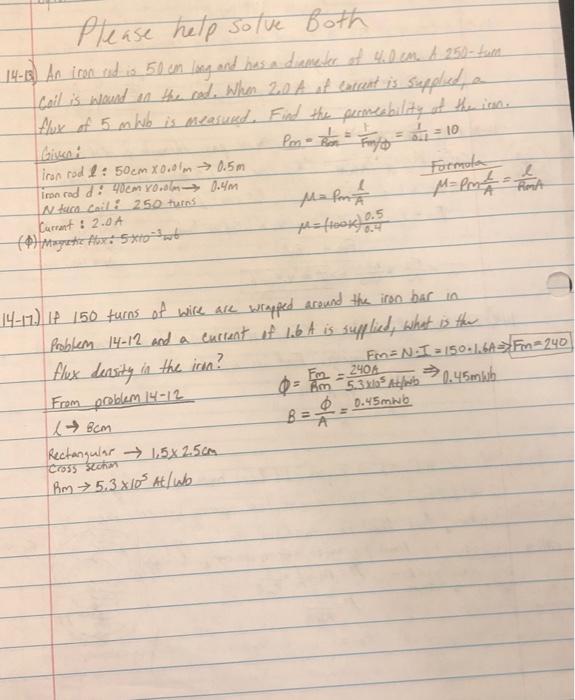 Please help solve Both
14-13) An iron rod is 50 cm long and has a diameter of 4.0 cm. A 250-turn
Coil is wound on the rod. When 2.0 A of current is supplied, a
flux of 5 mWb is measured. Find the permeability of the iron.
Pm = 1/Rm = 1/Fm/Φ = 1/0.1 = 10
Given:
iron rod l: 50cm x0.01m → 0.5m
iron rod d: 40cm x0.01m → 0.4m
N turn Coil: 250 turns
Current: 2.0A
(Φ) Magnetic flux: 5x10⁻³wb
μ = Pm l/A
μ = (100k) 0.5/0.4
Formula
μ = Pm l/A = l/RmA
14-17.) If 150 turns of wire are wrapped around the iron bar in
Problem 14-12 and a current of 1.6 A is supplied, what is the
flux density in the iron?
Fm = N·I = 150·1.6A ⇒ Fm=240
From problem 14-12
Φ = Fm/Rm = 240A/5.3x10⁵ At/wb ⇒ 0.45mwb
l → 8cm
B = Φ/A = 0.45mwb
Rectangular → 1.5 x 2.5cm
Cross section
Rm → 5.3 x10⁵ At/wb